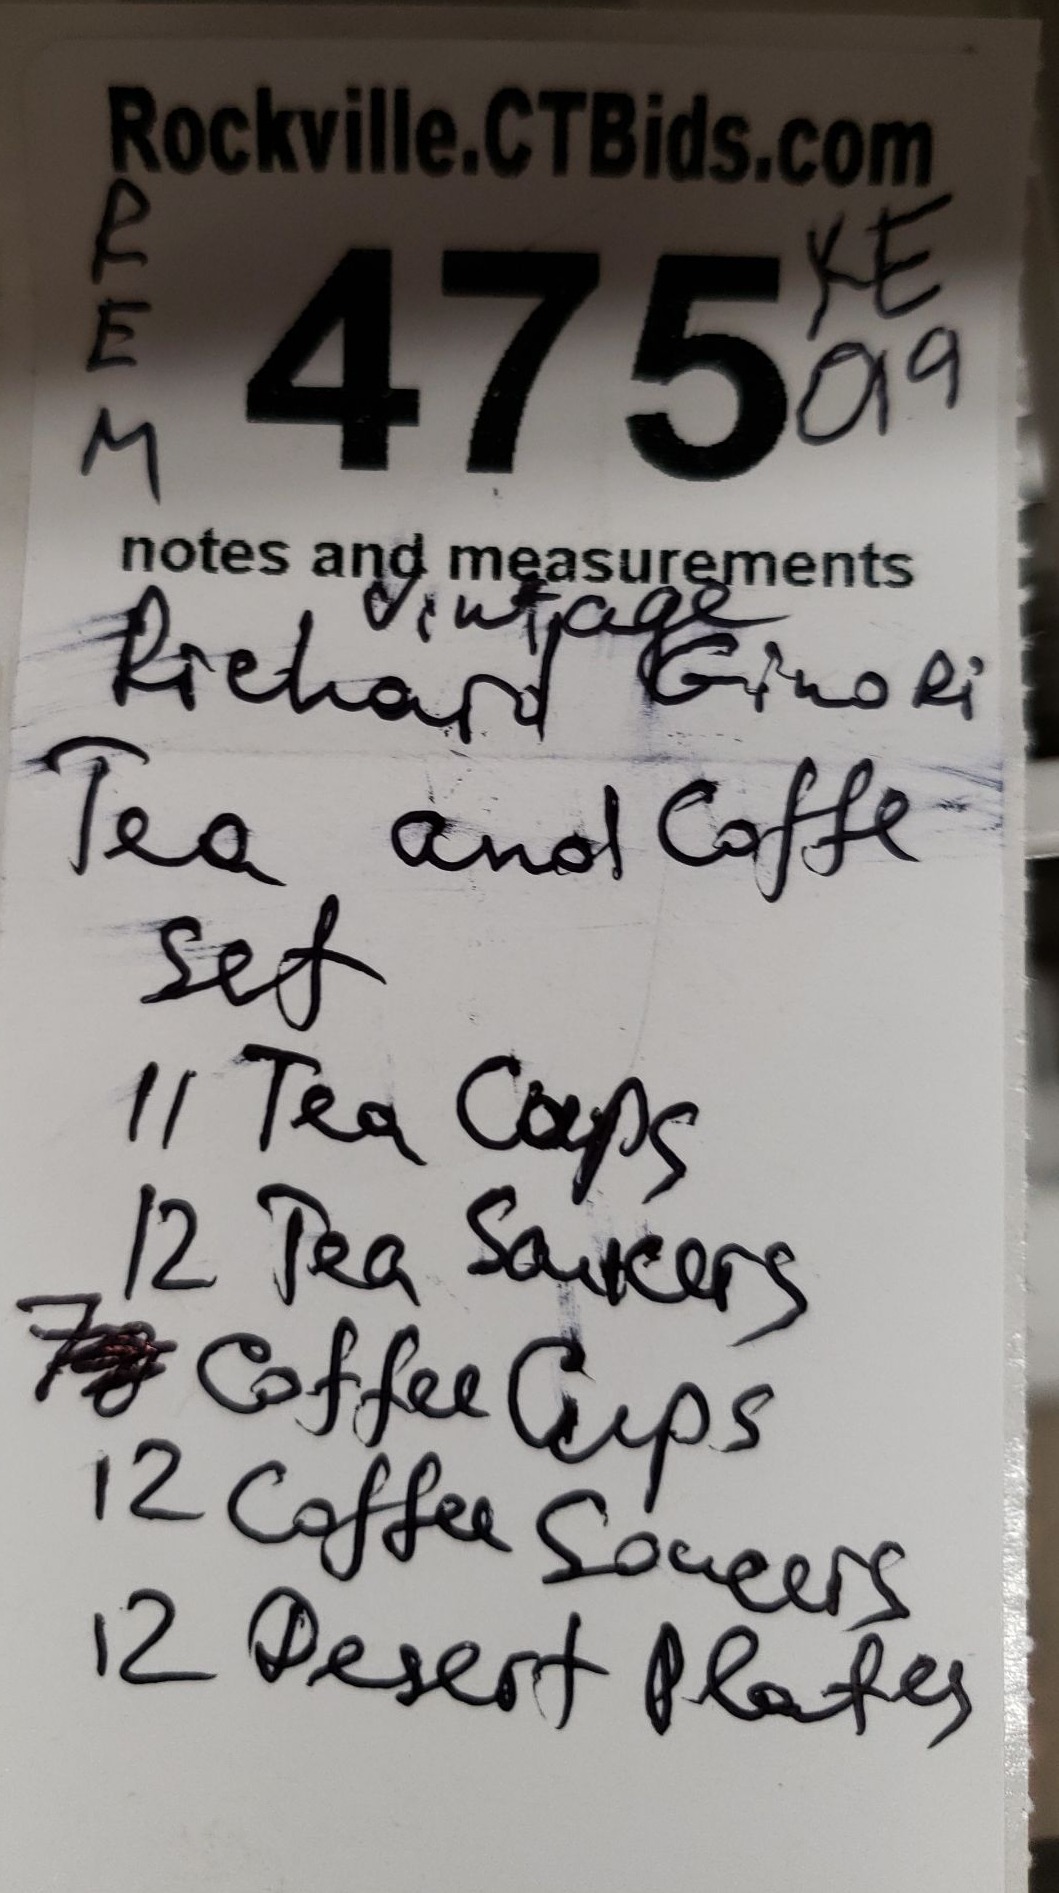 Rockville.CTBids.com
REM
475
KE
019
notes and measurements
Vintage
Richard Ginori
Tea and Coffe
set
11 Tea Cups
12 Tea Saucers
7 Coffee Cups
12 Coffee Saucers
12 Desert Plates